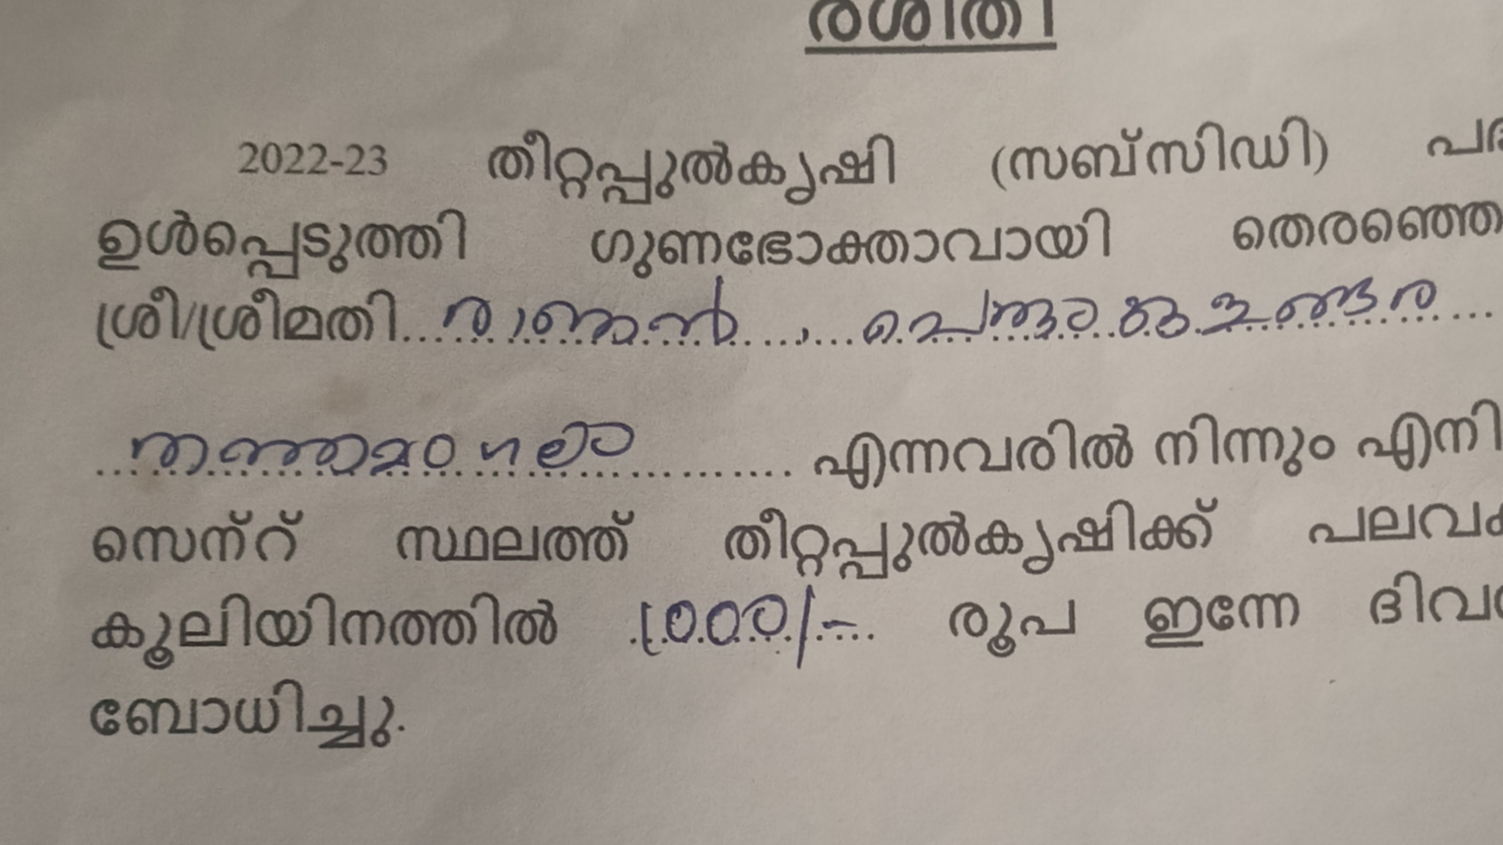 രശീതി
2022-23 തീറ്റപ്പുൽകൃഷി (സബ്സിഡി)
ഉൾപ്പെടുത്തി ഗുണഭോക്താവായി തെരഞ്ഞെ
ശ്രീ/ശ്രീമതി രാജൻ,
തത്തമംഗലം എന്നവരിൽ നിന്നും എനി
സെന്റ് സ്ഥലത്ത് തീറ്റപ്പുൽകൃഷിക്ക് പലവക
കൂലിയിനത്തിൽ 1000/- രൂപ ഇന്നേ ദിവ
ബോധിച്ചു.